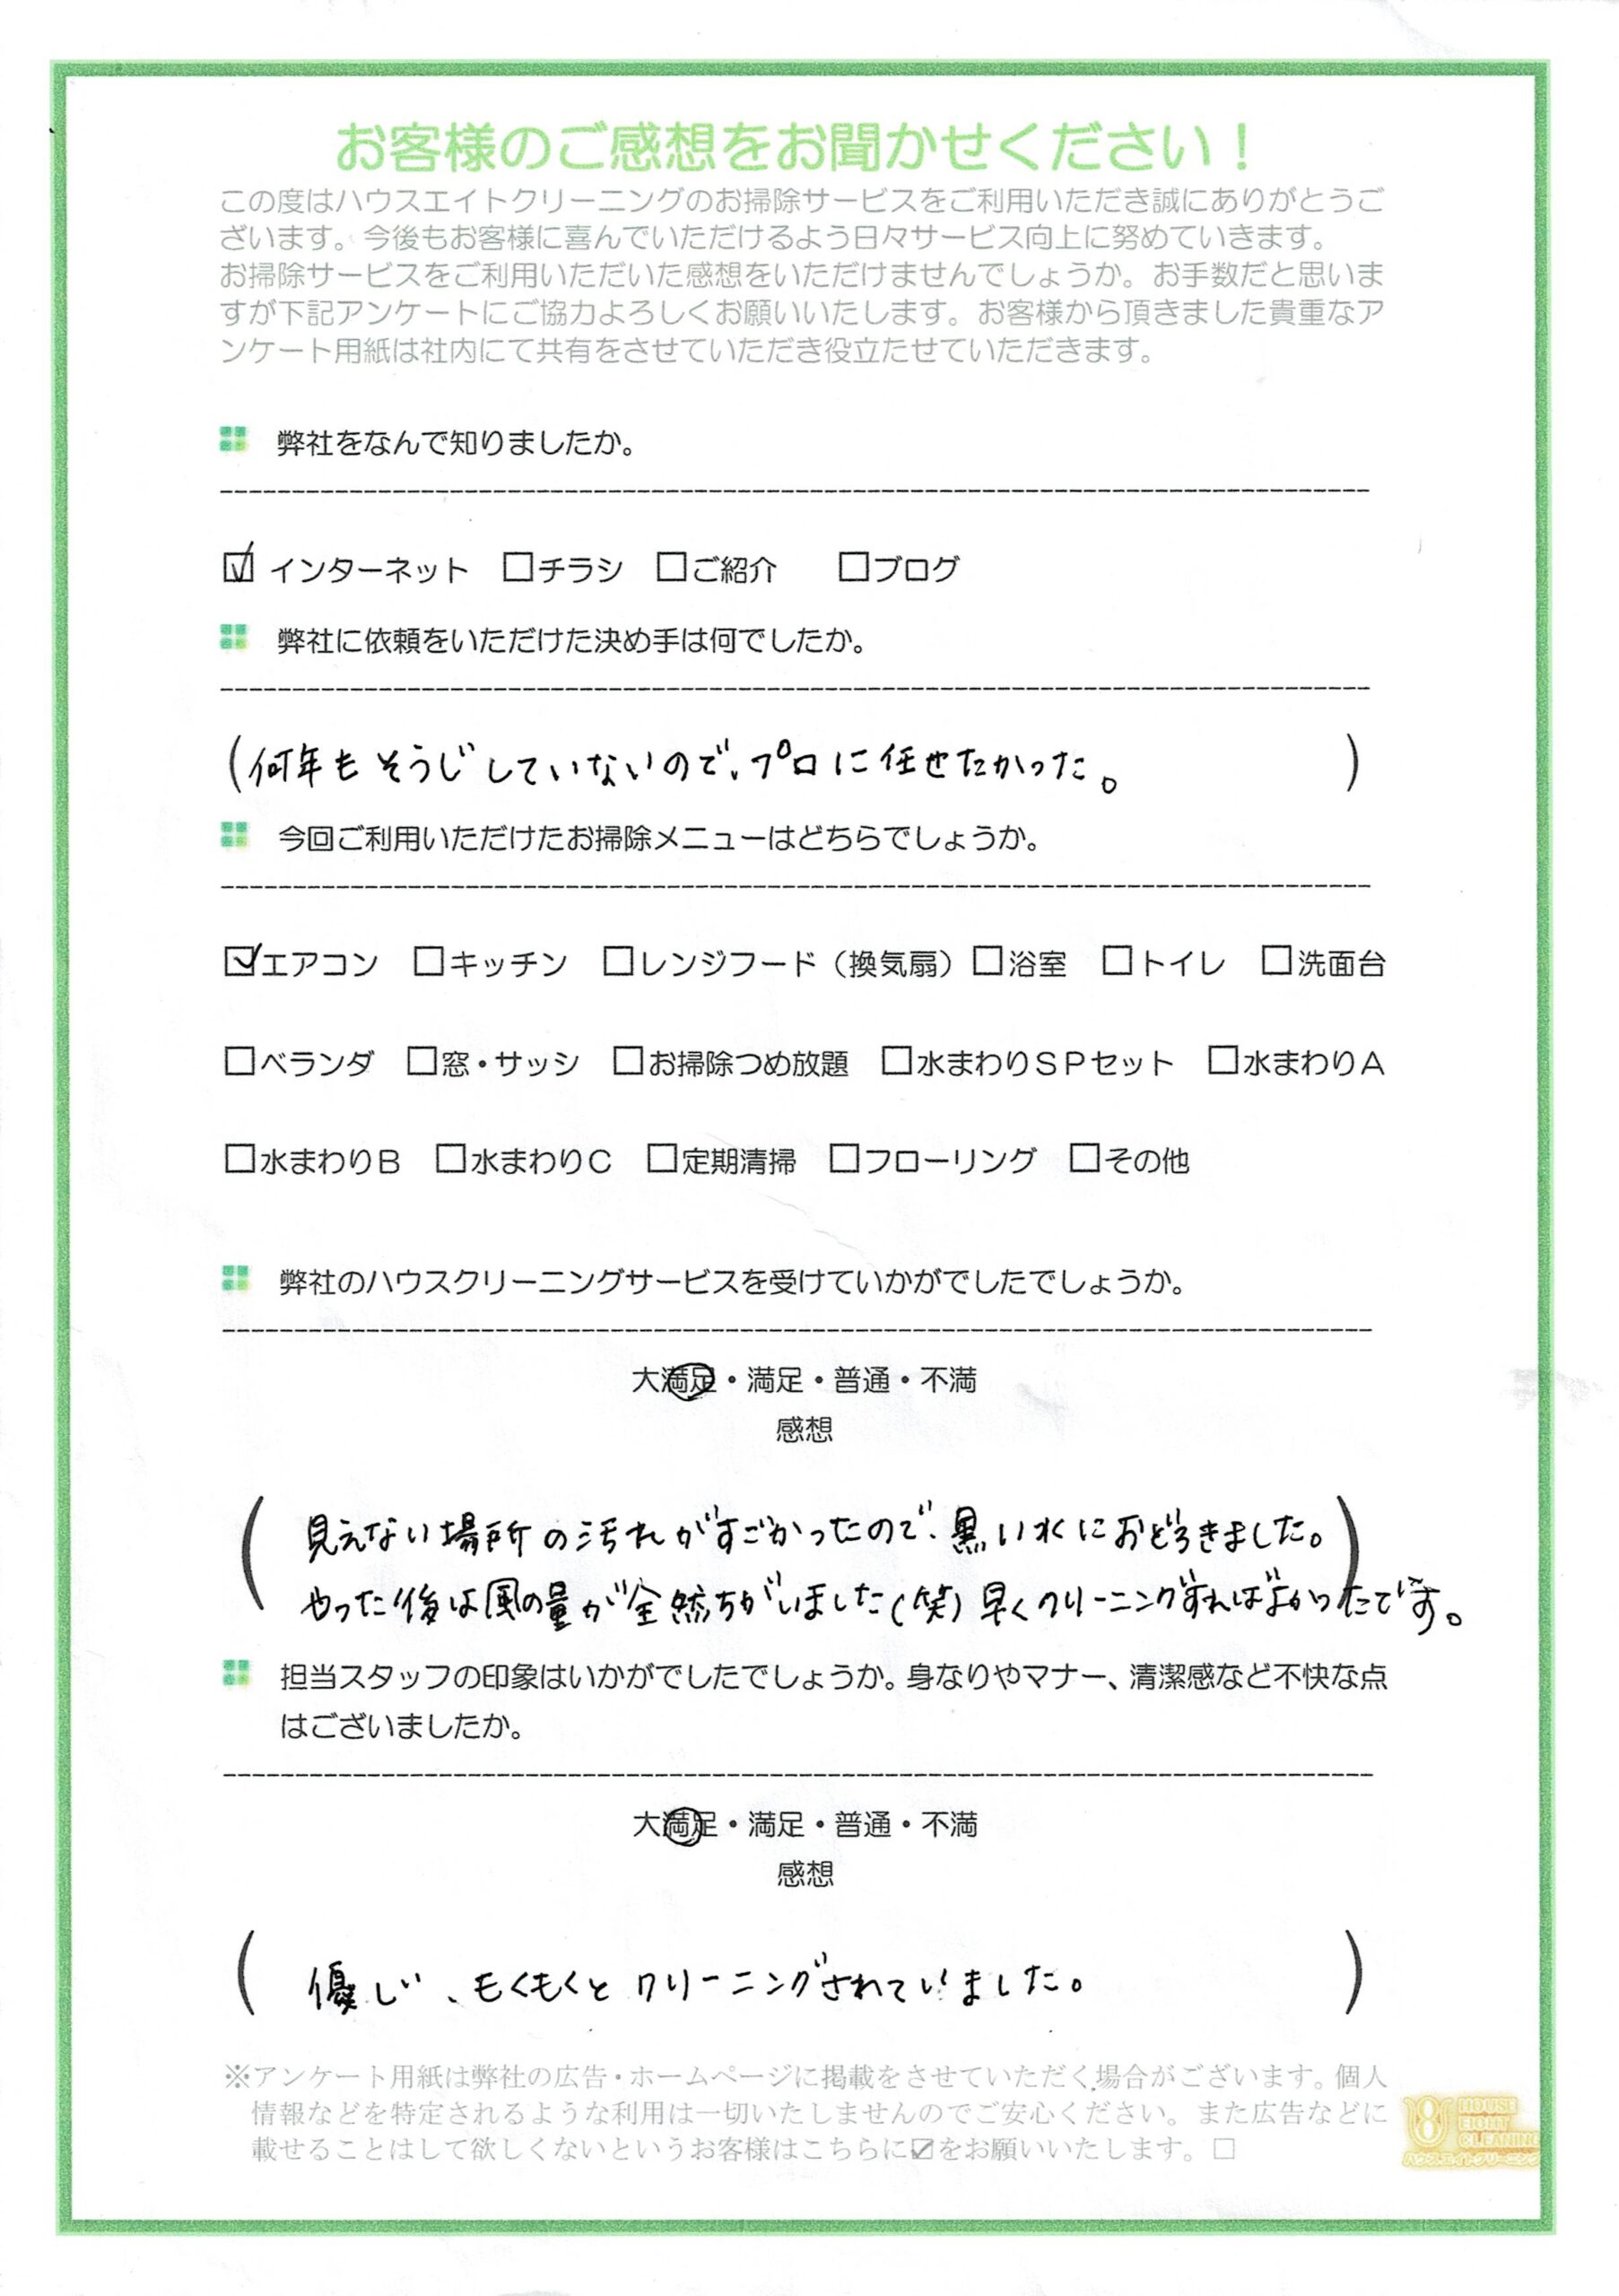 お客様のご感想をお聞かせください！
この度はハウスエイトクリーニングのお掃除サービスをご利用いただき誠にありがとうご
ざいます。今後もお客様に喜んでいただけるよう日々サービス向上に努めていきます。
お掃除サービスをご利用いただいた感想をいただけませんでしょうか。お手数だと思いま
すが下記アンケートにご協力よろしくお願いいたします。お客様から頂きました貴重なア
ンケート用紙は社内にて共有をさせていただき役立たせていただきます。
弊社をなんで知りましたか。
☑インターネット □チラシ □ご紹介 □ブログ
弊社に依頼をいただけた決め手は何でしたか。
(何年もそうじしていないので、プロに任せたかった。)
今回ご利用いただけたお掃除メニューはどちらでしょうか。
☑エアコン □キッチン □レンジフード（換気扇） □浴室 □トイレ □洗面台
□ベランダ □窓・サッシ □お掃除つめ放題 □水まわりＳＰセット □水まわりＡ
□水まわりＢ □水まわりＣ □定期清掃 □フローリング □その他
弊社のハウスクリーニングサービスを受けていかがでしたでしょうか。
大満足・満足・普通・不満
感想
(見えない場所の汚れがすごかったので、黒い水におどろきました。)
やった後は風の量が全然ちがいました(笑)早くクリーニングすればよかったです。
担当スタッフの印象はいかがでしたでしょうか。身なりやマナー、清潔感など不快な点
はございましたか。
大満足・満足・普通・不満
感想
(優しい、もくもくとクリーニングされていました。)
※アンケート用紙は弊社の広告・ホームページに掲載をさせていただく場合がございます。個人
情報などを特定されるような利用は一切いたしませんのでご安心ください。また広告などに
載せることはして欲しくないというお客様はこちらに☑をお願いいたします。□
HOUSE
EIGHT
CLEANING
ハウスエイトクリーニング